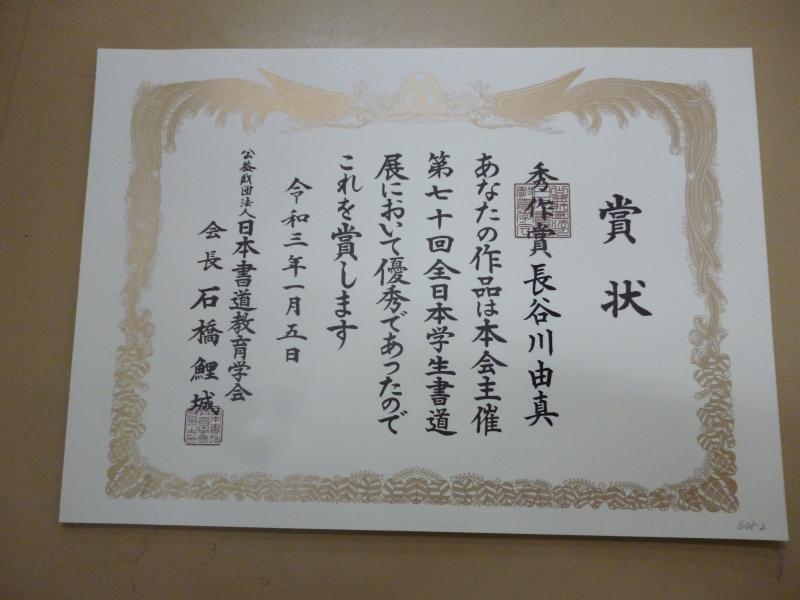 賞状
秀作賞長谷川由真
あなたの作品は本会主催
第七十回全日本学生書道
展において優秀であったので
これを賞します
令和三年一月五日
公益財団法人日本書道教育学会
会長 石橋鯉城